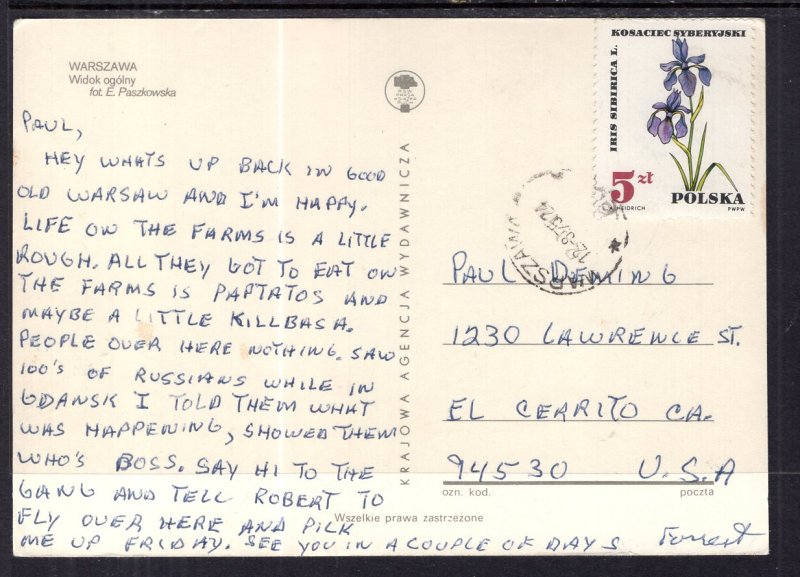 WARSZAWA
Widok ogólny
fot. E. Paszkowska
PAUL,
HEY WHATS UP BACK IN GOOD
OLD WARSAW AND I'M HAPPY.
LIFE ON THE FARMS IS A LITTLE
ROUGH. ALL THEY GOT TO EAT ON
THE FARMS IS PAPTATOS AND
MAYBE A LITTLE KILLBASA.
PEOPLE OVER HERE NOTHING. SAW
100'S OF RUSSIANS WHILE IN
GDANSK I TOLD THEM WHAT
WAS HAPPENING, SHOWED THEM
WHO'S BOSS. SAY HI TO THE
GANG AND TELL ROBERT TO
FLY OVER HERE AND PICK
ME UP FRIDAY. SEE YOU IN A COUPLE OF DAYS
Forrest
Wszelkie prawa zastrzeżone
KRAJOWA AGENCJA WYDAWNICZA
KOSACIEC SYBERYJSKI
IRIS SIBIRICA L.
5 zł
POLSKA
A. HEIDRICH
PWPW
WARSZAWA
PAUL DEMING
1230 LAWRENCE ST.
EL CERRITO CA.
94530 U.S.A
ozn. kod.
poczta